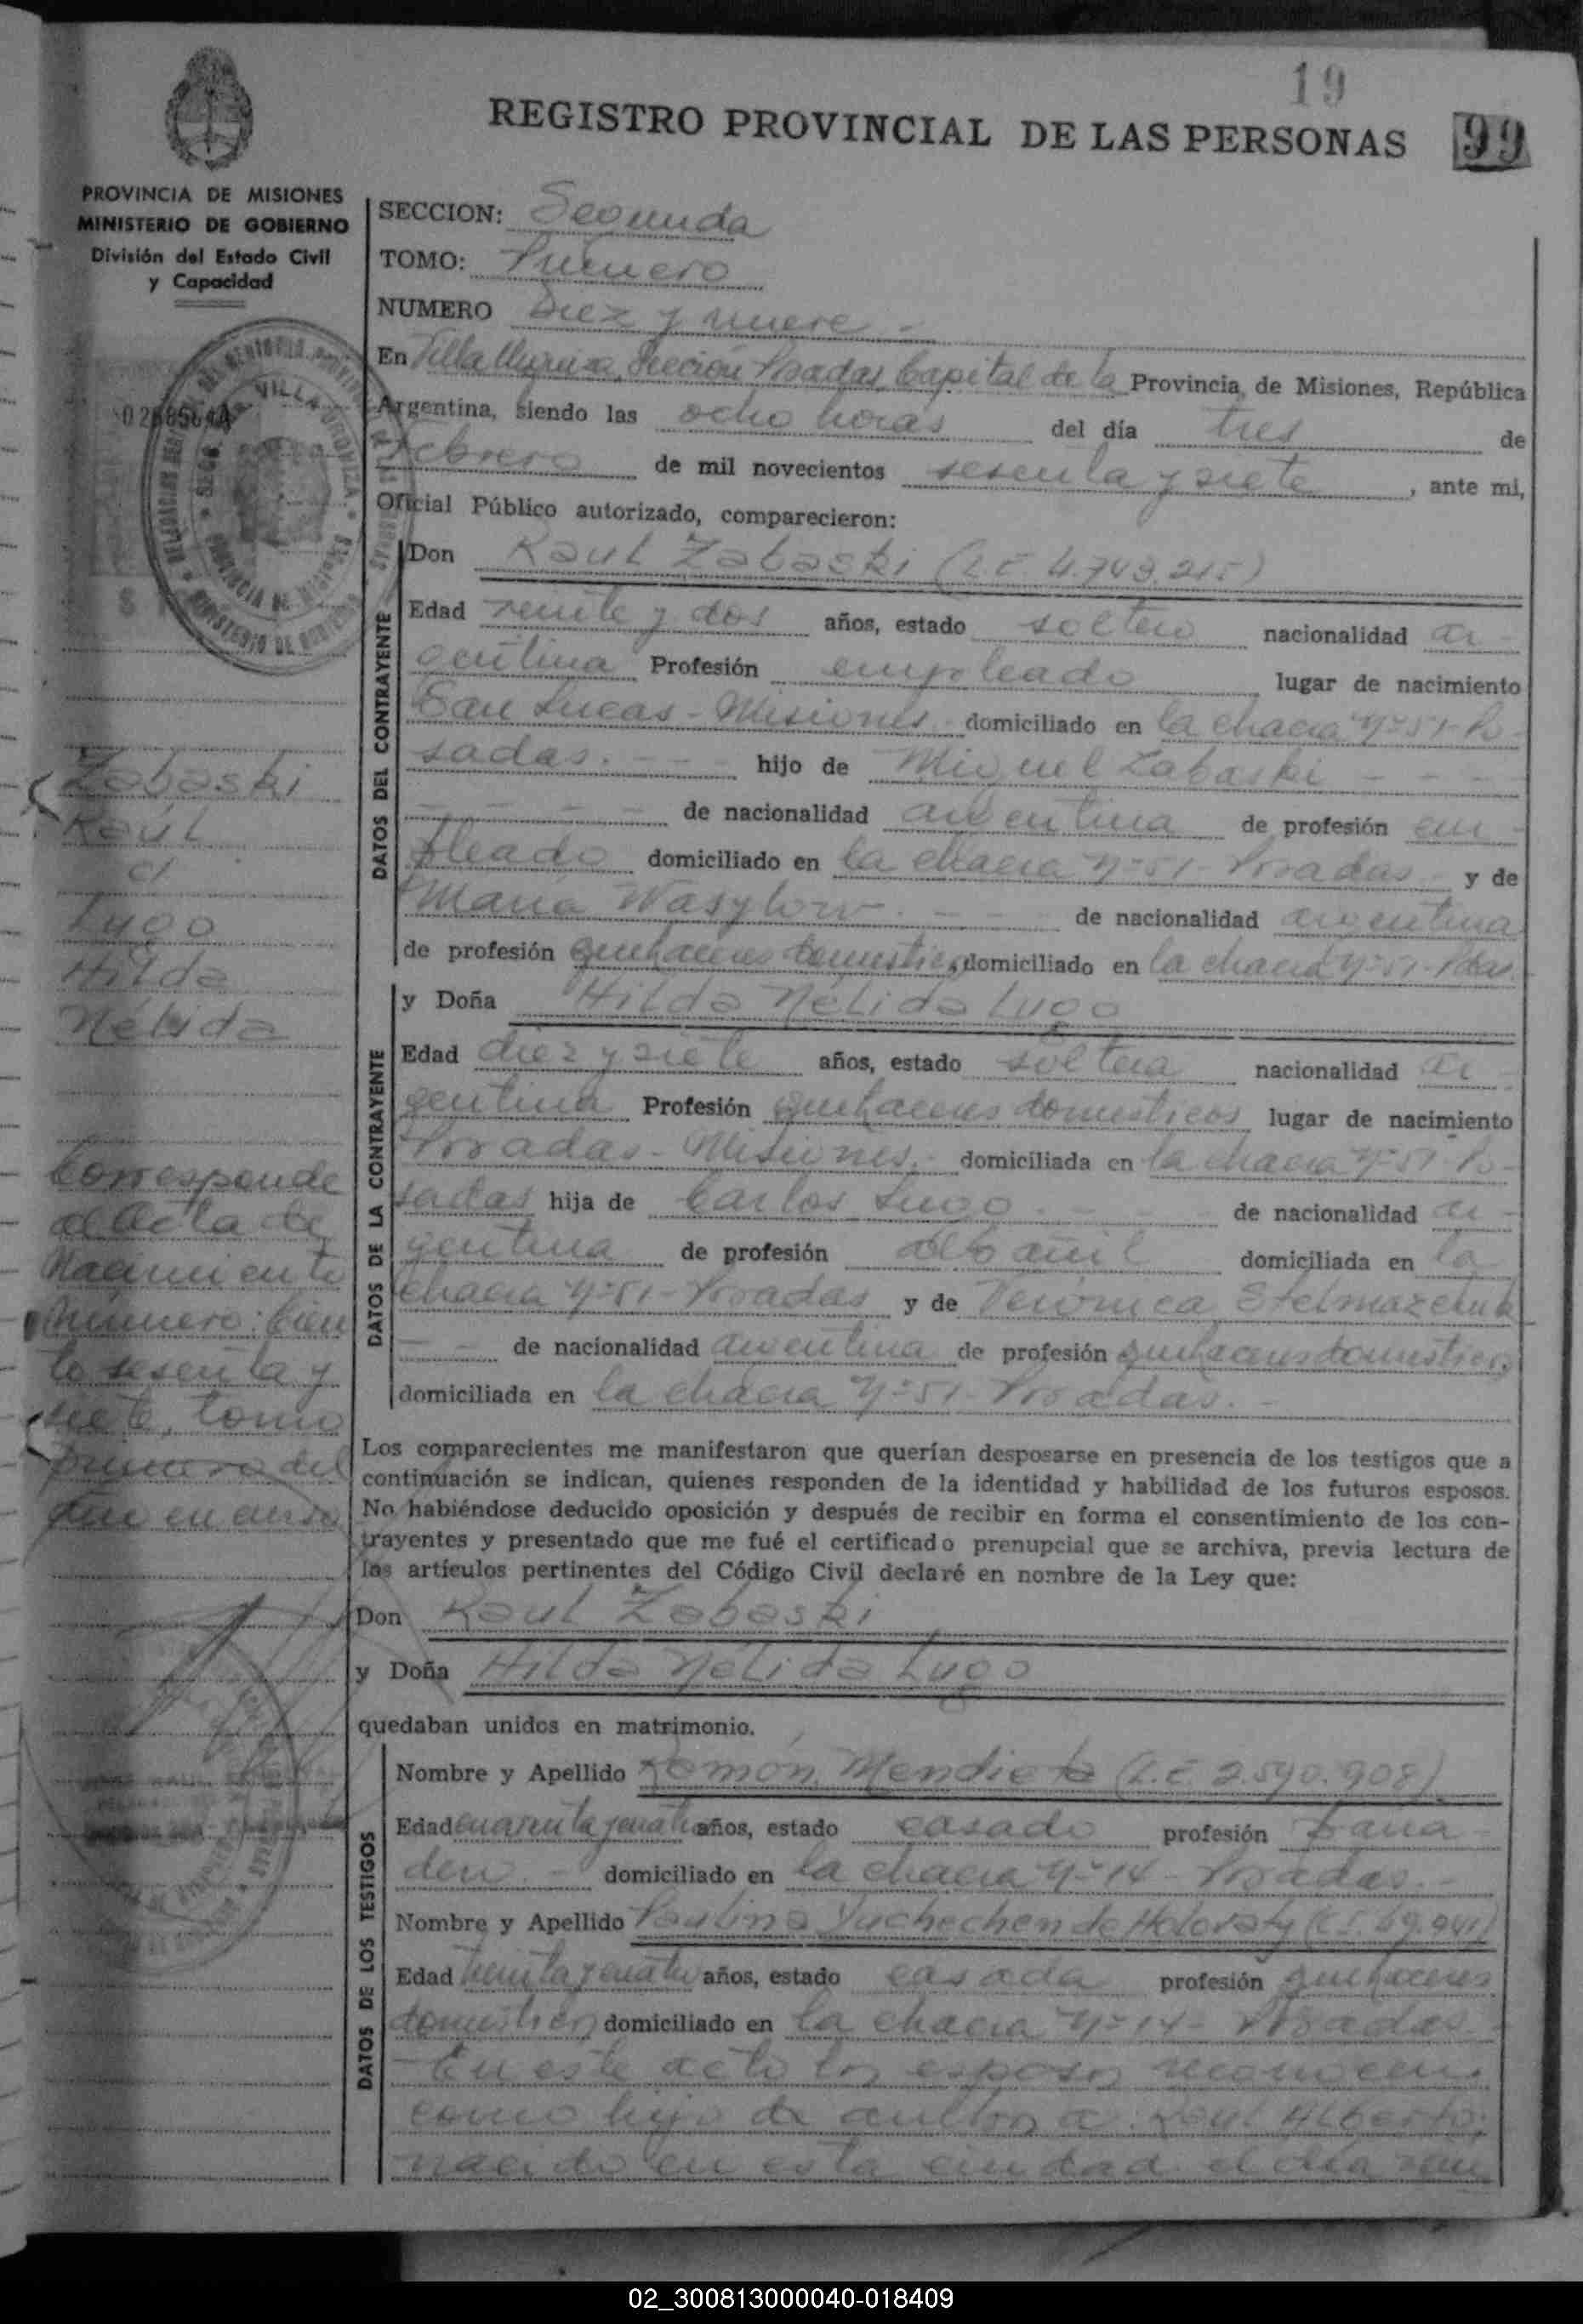 19
REGISTRO PROVINCIAL DE LAS PERSONAS 99
PROVINCIA DE MISIONES
MINISTERIO DE GOBIERNO
División del Estado Civil
y Capacidad
SECCION: Segunda
TOMO: Primero
NUMERO Diez y nueve -
En Villa Urquiza, Sección Posadas, Capital de la Provincia de Misiones, República
Argentina, siendo las ocho horas del día tres de
Febrero de mil novecientos sesenta y siete, ante mi,
Oficial Público autorizado, comparecieron:
DATOS DEL CONTRAYENTE
Don Raul Zabaski (L.E. 4.743.215)
Edad veinte y dos años, estado soltero nacionalidad ar-
gentina Profesión empleado lugar de nacimiento
San Lucas - Misiones - domiciliado en la chacra Nº 51 - Po-
sadas. - - - hijo de Miguel Zabaski - - - -
- - - - de nacionalidad argentina de profesión em-
pleado domiciliado en la chacra Nº 51 - Posadas y de
Maria Wasylow. - - - de nacionalidad argentina
de profesión quehaceres domésticos domiciliado en la chacra Nº 51 - Pdas.
DATOS DE LA CONTRAYENTE
y Doña Hilda Nélida Lugo
Edad diez y siete años, estado soltera nacionalidad ar-
gentina Profesión quehaceres domésticos lugar de nacimiento
Posadas - Misiones. - domiciliada en la chacra Nº 51 - Po-
sadas hija de Carlos Lugo. - - - de nacionalidad ar-
gentina de profesión albañil domiciliada en la
chacra Nº 51 - Posadas y de Verónica Stelmazchuk
- - de nacionalidad argentina de profesión quehaceres domésticos
domiciliada en la chacra Nº 51 - Posadas. -
Los comparecientes me manifestaron que querían desposarse en presencia de los testigos que a
continuación se indican, quienes responden de la identidad y habilidad de los futuros esposos.
No habiéndose deducido oposición y después de recibir en forma el consentimiento de los con-
trayentes y presentado que me fué el certificado prenupcial que se archiva, previa lectura de
los artículos pertinentes del Código Civil declaré en nombre de la Ley que:
Don Raul Zabaski
y Doña Hilda Nélida Lugo
quedaban unidos en matrimonio.
DATOS DE LOS TESTIGOS
Nombre y Apellido Ramón Mendieta (L.E. 2.590.908)
Edad cuarenta y cuatro años, estado casado profesión pana-
dero. - domiciliado en la chacra Nº 14 - Posadas. -
Nombre y Apellido Paulina Yuchechen de Holovaty (C.I. 69.941)
Edad treinta y cuatro años, estado casada profesión quehaceres
domésticos domiciliado en la chacra Nº 14 - Posadas. -
- En este acto los esposos reconocen
como hijo de ambos a: Raul Alberto,
nacido en esta ciudad el día vein
Zabaski
Raúl
c/
Lugo
Hilda
Nélida
Corresponde
al Acta de
Nacimiento
número: Cien
to sesenta y
siete, tomo
primero del
año en curso
02_300813000040-018409